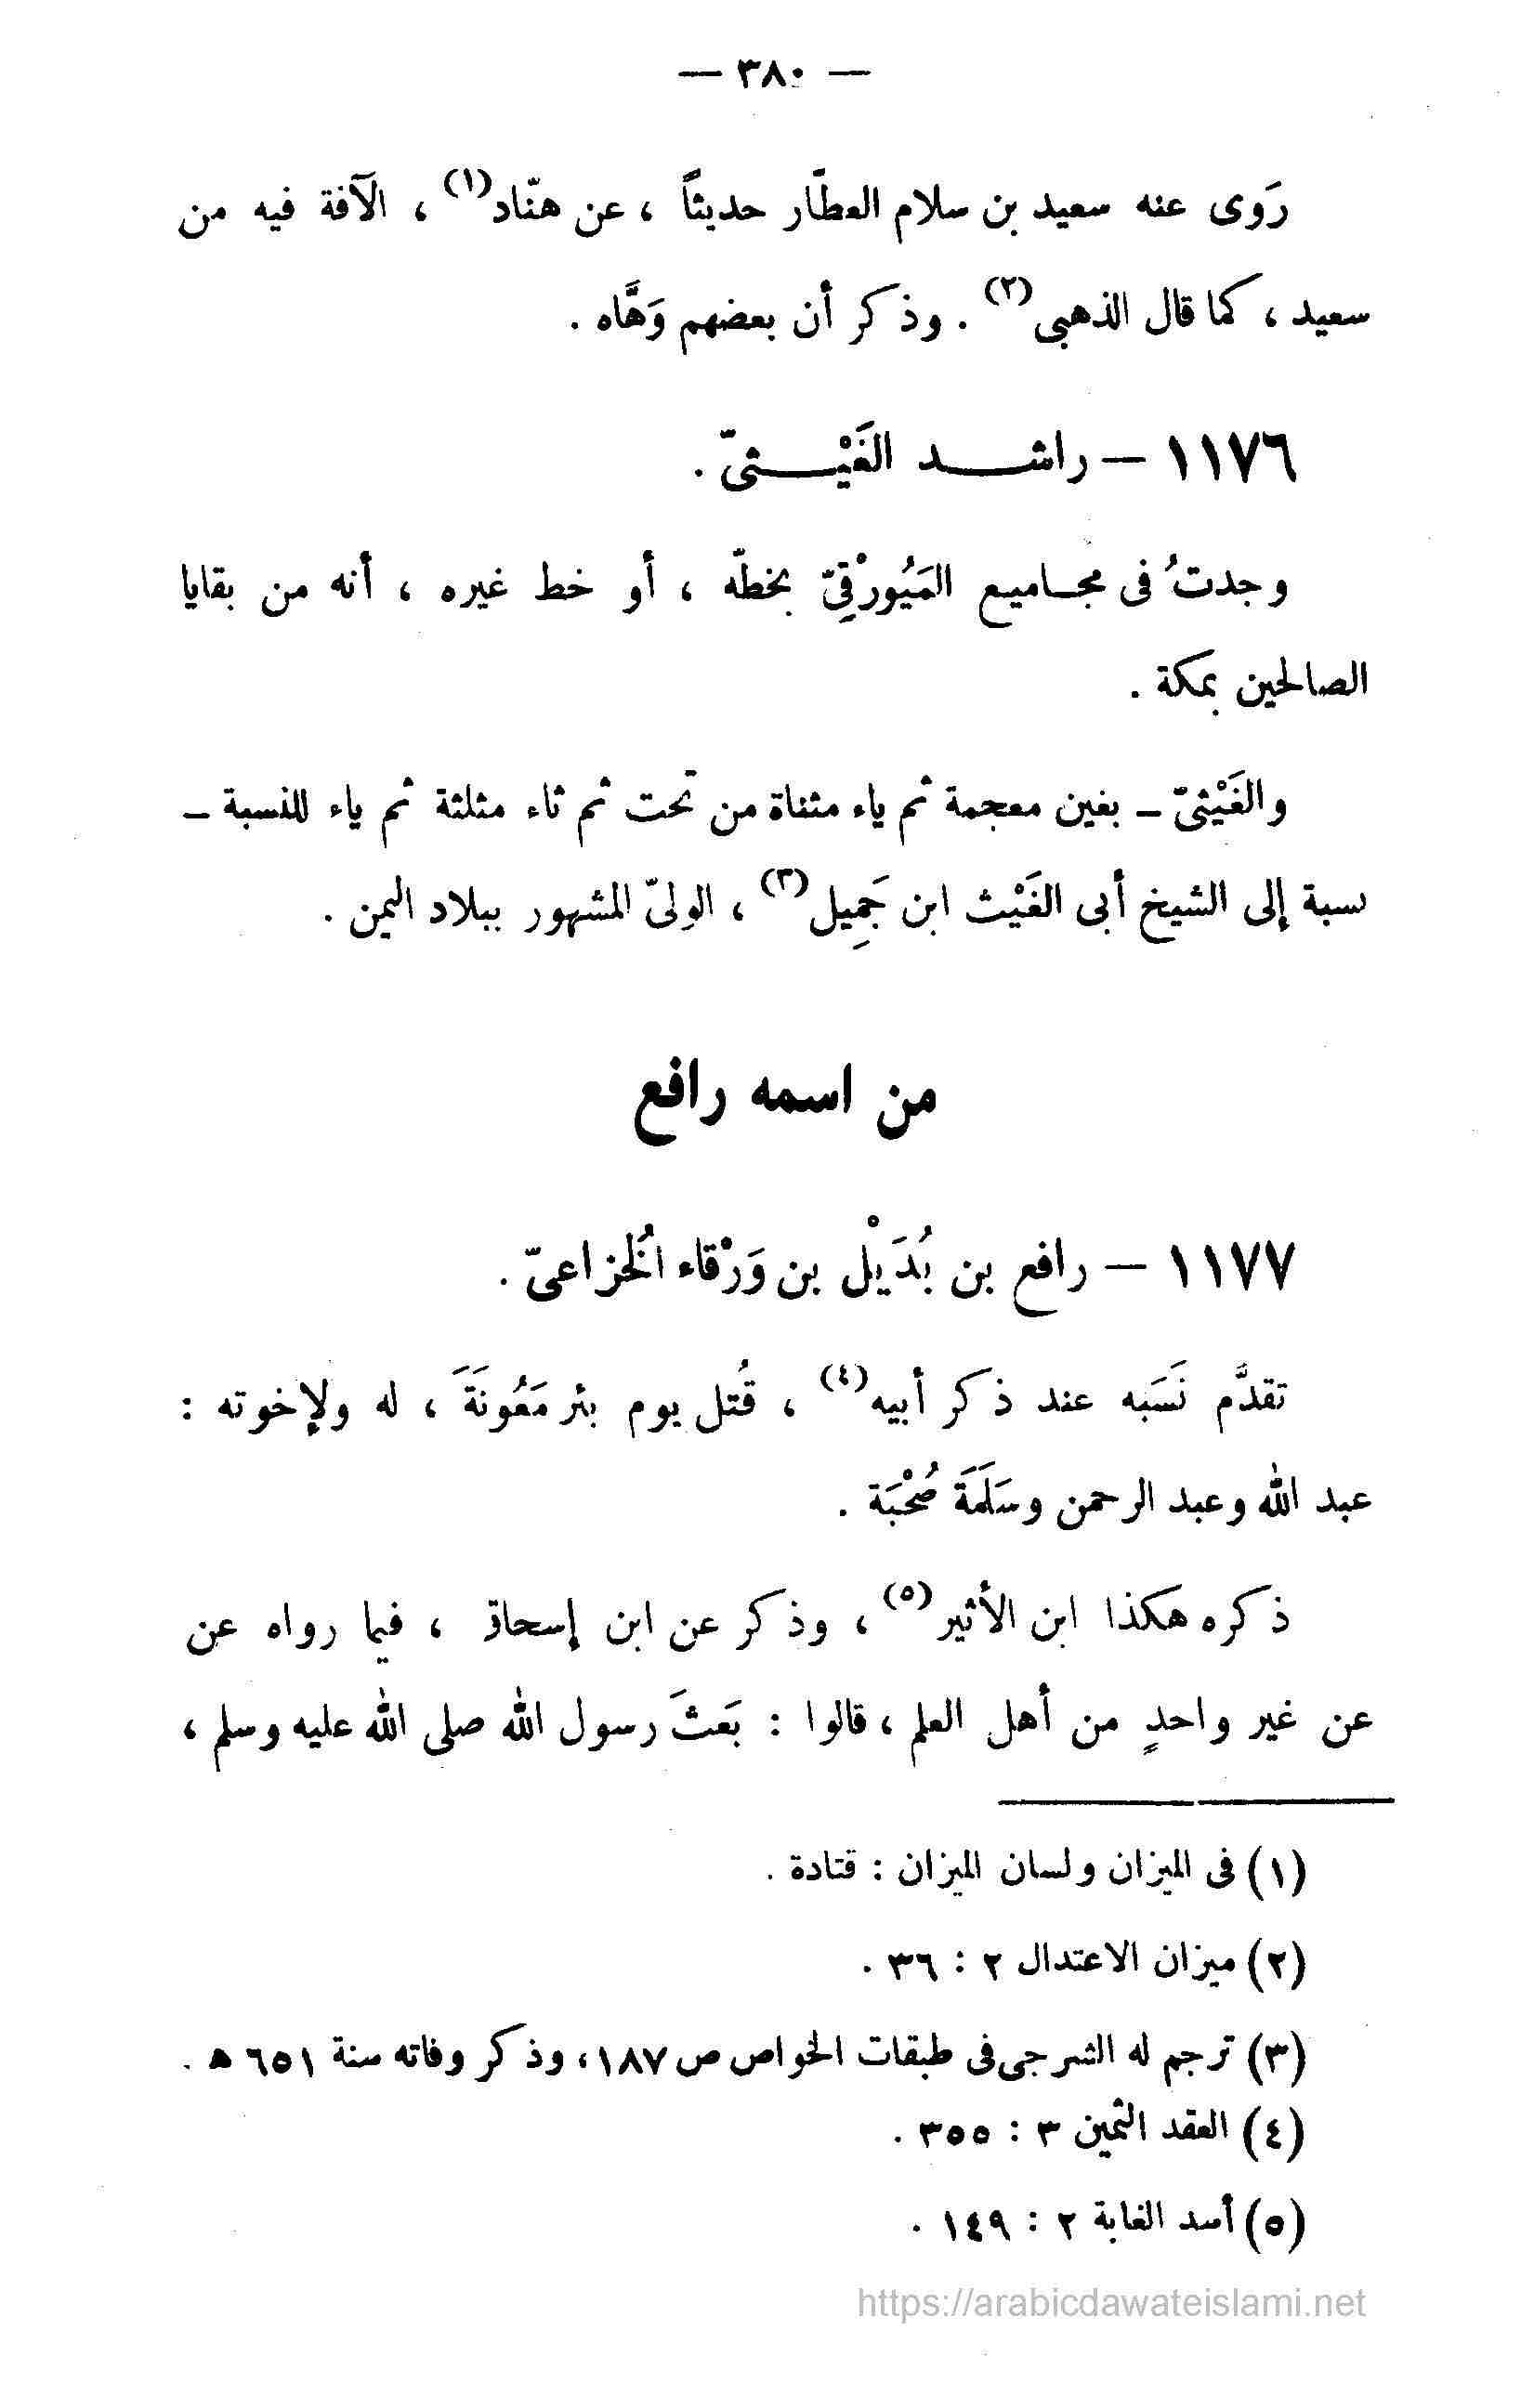 — ٣٨٠ —
رَوى عنه سعيد بن سلام العطّار حديثاً ، عن هنّاد(١) ، الآفة فيه من
سعيد ، كما قال الذهبى(٢) . وذكر أن بعضهم وَهَّاه .
١١٧٦ — راشد الغَيْثىّ .
وجدتُ فى مجاميع المَيُورْقِىّ بخطّه ، أو خط غيره ، أنه من بقايا
الصالحين بمكة .
والغَيْثىّ – بغين معجمة ثم ياء مثناة من تحت ثم ثاء مثلثة ثم ياء للنسبة –
نسبة إلى الشيخ أبى الغَيْث ابن جَمِيل(٣) ، الولىّ المشهور ببلاد اليمن .
من اسمه رافع
١١٧٧ — رافع بن بُدَيْل بن وَرْقاء الُخزاعىّ .
تقدَّم نَسَبه عند ذكر أبيه(٤) ، قُتل يوم بئر مَعُونَةَ ، له ولإخوته :
عبد الله وعبد الرحمن وسَلَمَةَ صُحْبَة .
ذكره هكذا ابن الأثير(٥) ، وذكر عن ابن إسحاق ، فيما رواه عن
عن غير واحدٍ من أهل العلم ، قالوا : بَعَثَ رسول الله صلى الله عليه وسلم ،
(١) فى الميزان ولسان الميزان : قتادة .
(٢) ميزان الاعتدال ٢ : ٣٦ .
(٣) ترجم له الشرجى فى طبقات الخواص ص ١٨٧ ، وذكر وفاته سنة ٦٥١ ه .
(٤) العقد الثمين ٣ : ٣٥٥ .
(٥) أسد الغابة ٢ : ١٤٩ .
https://arabicdawateislami.net